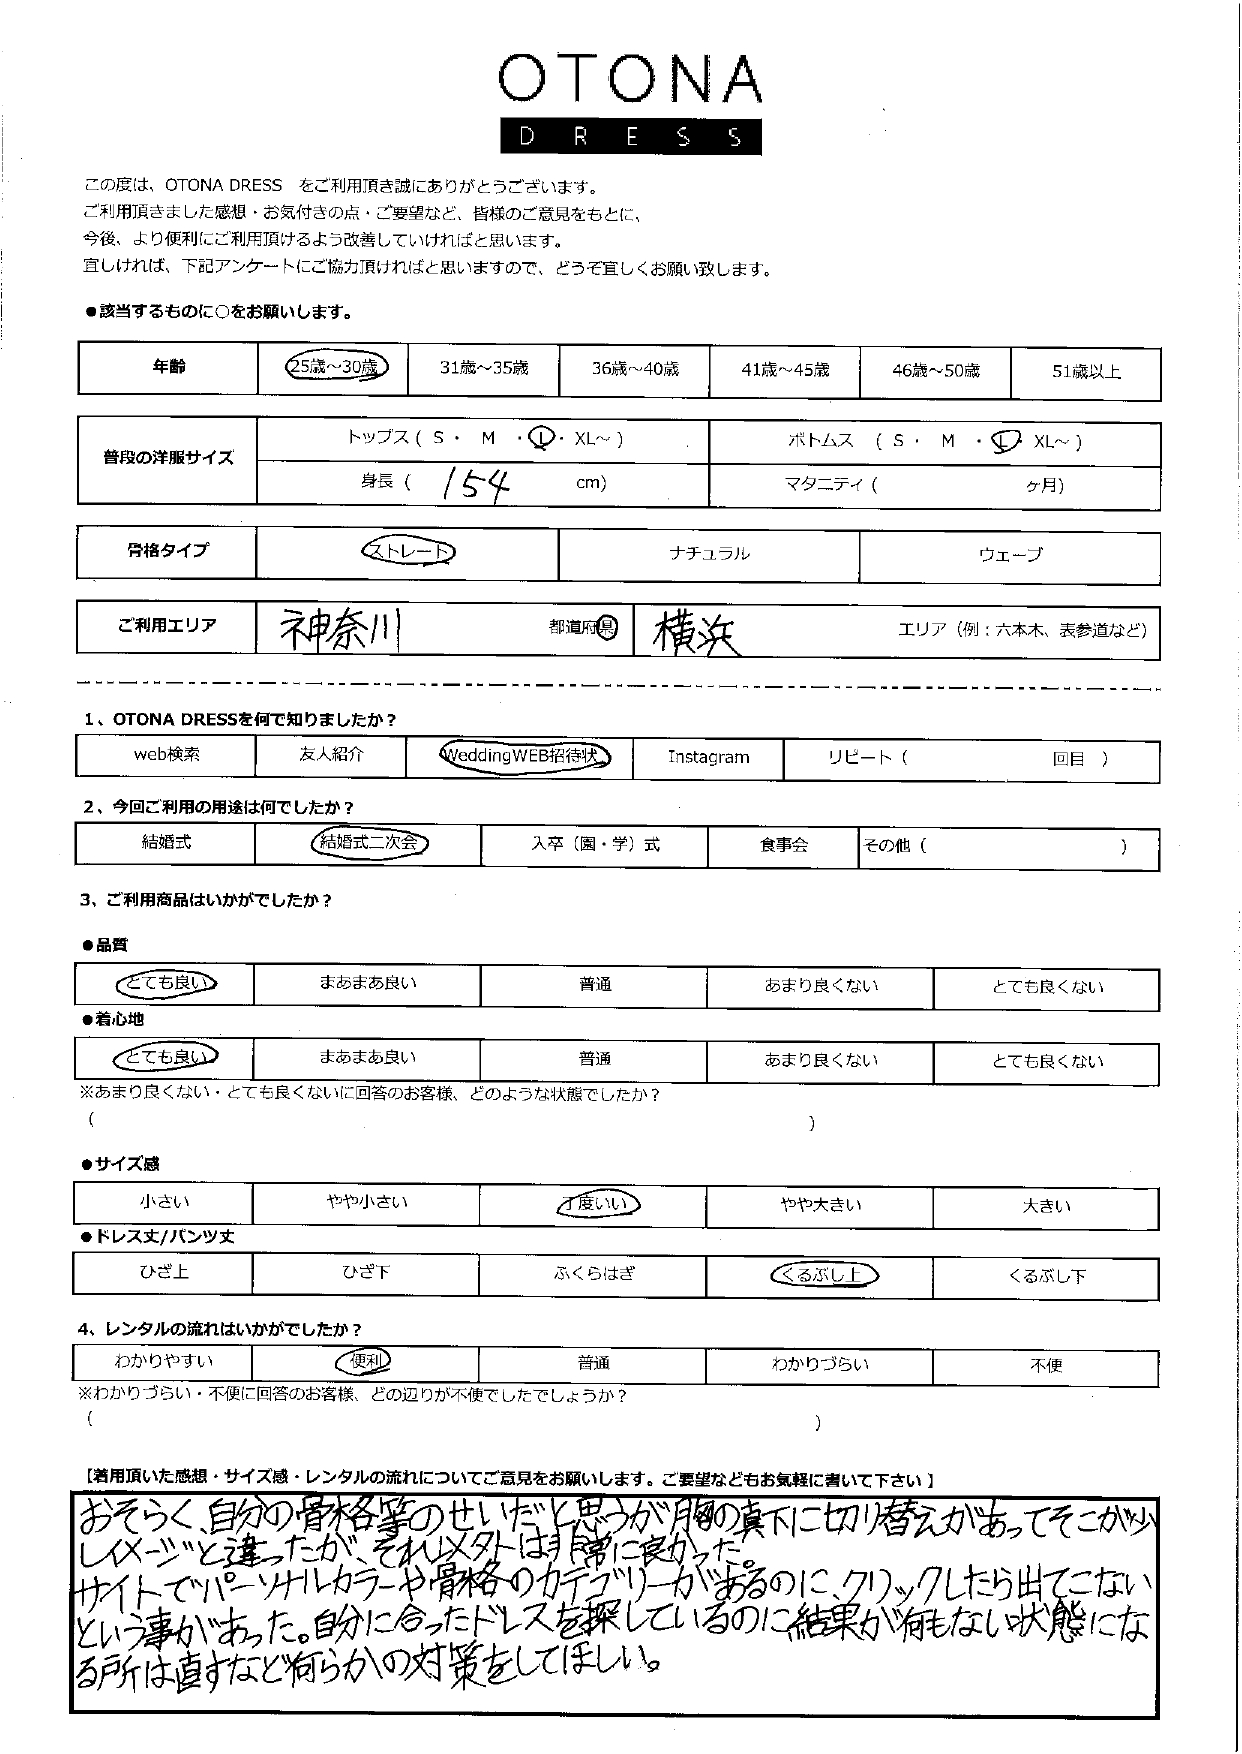 OTONA
DRESS
この度は、OTONA DRESS をご利用頂き誠にありがとうございます。
ご利用頂きました感想・お気付きの点・ご要望など、皆様のご意見をもとに、
今後、より便利にご利用頂けるよう改善していければと思います。
宜しければ、下記アンケートにご協力頂ければと思いますので、どうぞ宜しくお願い致します。
●該当するものに○をお願いします。
年齢 25歳～30歳 31歳～35歳 36歳～40歳 41歳～45歳 46歳～50歳 51歳以上
普段の洋服サイズ トップス ( S ・ M ・ L ・ XL～ ) ボトムス ( S ・ M ・ L ・ XL～ )
身長 ( 154 cm) マタニティ ( ヶ月)
骨格タイプ ストレート ナチュラル ウェーブ
ご利用エリア 神奈川 都道府県 横浜 エリア（例：六本木、表参道など）
1、OTONA DRESSを何で知りましたか？
web検索 友人紹介 WeddingWEB招待状 Instagram リピート（ 回目 ）
2、今回ご利用の用途は何でしたか？
結婚式 結婚式二次会 入卒（園・学）式 食事会 その他（ ）
3、ご利用商品はいかがでしたか？
●品質
とても良い まあまあ良い 普通 あまり良くない とても良くない
●着心地
とても良い まあまあ良い 普通 あまり良くない とても良くない
※あまり良くない・とても良くないに回答のお客様、どのような状態でしたか？
（ ）
●サイズ感
小さい やや小さい 丁度いい やや大きい 大きい
●ドレス丈/パンツ丈
ひざ上 ひざ下 ふくらはぎ くるぶし上 くるぶし下
4、レンタルの流れはいかがでしたか？
わかりやすい 便利 普通 わかりづらい 不便
※わかりづらい・不便に回答のお客様、どの辺りが不便でしたでしょうか？
（ ）
【着用頂いた感想・サイズ感・レンタルの流れについてご意見をお願いします。ご要望などもお気軽に書いて下さい】
おそらく、自分の骨格等のせいだと思うが胸の真下に切り替えがあってそこが少
しイメージと違ったが、それ以外は非常に良かった。
サイトでパーソナルカラーや骨格のカテゴリーがあるのに、クリックしたら出てこない
という事があった。自分に合ったドレスを探しているのに結果が何もない状態にな
る所は直すなど何らかの対策をしてほしい。